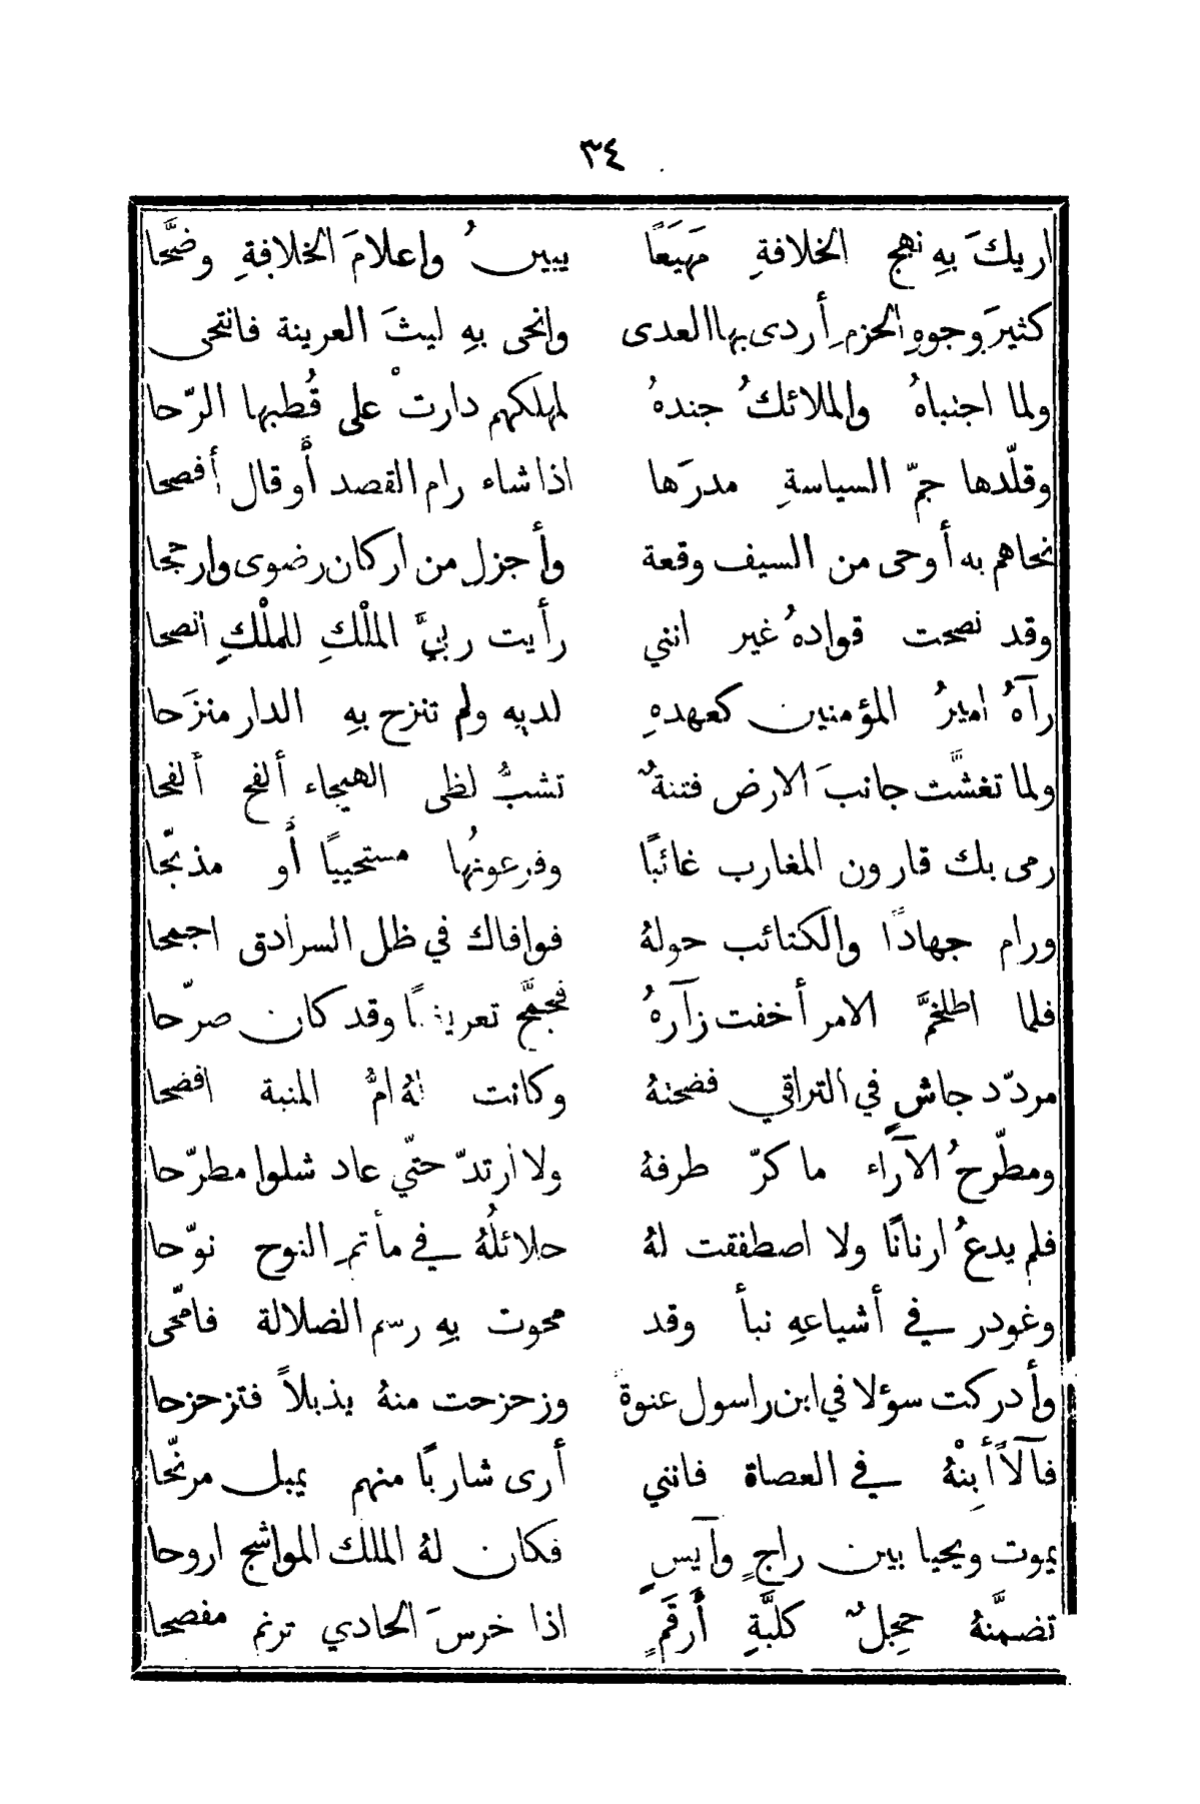 ٣٤
اريكَ بهِ نهج الخلافةِ مَهيَعًا يبينُ واعلامَ الخلافةِ وضَّحا
كثيرَ وجوهِ الحزمِ أردى بها العدى وانحى بهِ ليثَ العرينة فانتحى
ولما اجنباهُ والملائكُ جندهُ لمهلكهم دارتْ على قُطبها الرّحا
وقلّدها جمّ السياسةِ مدرَها اذا شاء رام القصد أو قال أفصحا
نحاهم به أوحى من السيف وقعة وأجزل من اركان رضوى وارجحا
وقد نصحت قوادهُ غير انني رأيت ربيَّ الملْكِ للملْكِ انصحا
رآهُ اميرُ المؤمنين كعهدهِ لديهِ ولم تنزح بهِ الدار منزَحا
ولما تغشَّت جانبَ الارض فتنةٌ تشبُّ لظى الهيجاء ألفح ألفحا
رمى بك قارون المغارب غائبًا وفرعونُها مستحييًا أو مذبّحا
ورام جهادًا والكتائب حولهُ فوافاك في ظل السرادق اجمحا
فلما اطلخمَّ الامر أخفت زآرهُ فجمجَّ وقد كان صرّحا
مردّد جاشٍ في التراقي فضحنهُ وكانت لهُ امُّ المنبة افضحا
ومطّرحُ الآراء ما كرّ طرفهُ ولا ارتدّ حتّي عاد شلوا مطرّحا
فلم يدعُ ارنانًا ولا اصطفقت لهُ حلائلُهُ في مأتمِ النوح نوّحا
وغودر في أشياعهِ نبأ وقد محوت بهِ رسم الضلالة فامّحى
وأدركت سؤلا في ابن راسول عنوة وزحزحت منهُ يذبلاً فتزحزحا
فآلاً أبِنْهُ في العصاة فانني أرى شاربًا منهم يميل مرنّحا
يموت ويحيا بين راجٍ وآيسٍ فكان لهُ الملك المواشج اروحا
تضمَّنهُ حجِلٌ كلبَّةِ أرقَمٍ اذا خرسَ الحادي ترنم مفصحا